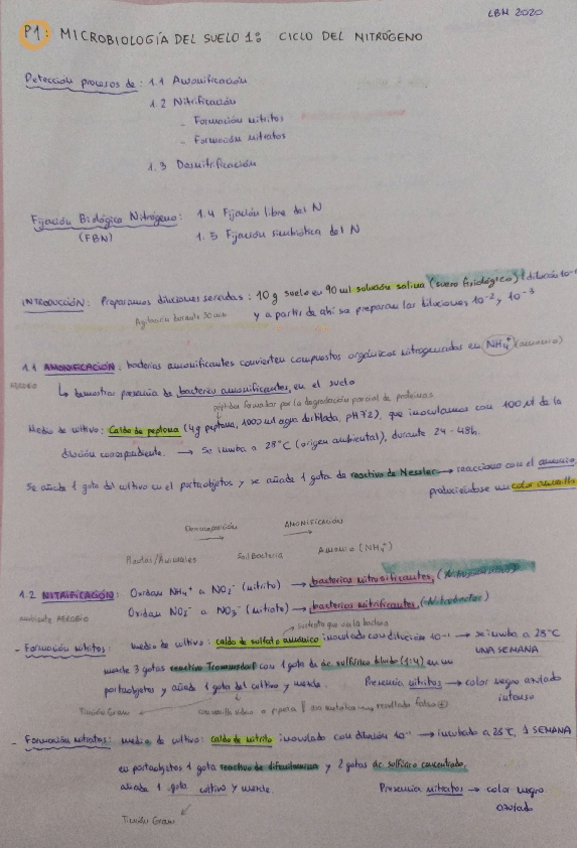 LBM 2020
P1: MICROBIOLOGÍA DEL SUELO 1: CICLO DEL NITRÓGENO
Detección procesos de: 1.1 Amonificación
1.2 Nitrificación
- Formación nitritos
- Formación nitratos
1.3 Desnitrificación
Fijación Biológica Nitrógeno: 1.4 Fijación libre del N
(FBN) 1.5 Fijación simbiótica del N
INTRODUCCIÓN: Preparamos diluciones seriadas: 10 g suelo en 90 ml solución salina (suero fisiológico) (dilución 10⁻¹
Agitación durante 30 min y a partir de ahí se preparan las diluciones 10⁻² y 10⁻³
1.1 AMONIFICACIÓN: bacterias amonificantes convierten compuestos orgánicos nitrogenados en NH₄⁺ (amonio)
AEROBIO ↳ demostrar presencia de bacterias amonificantes, en el suelo
péptidos formados por la degradación parcial de proteínas
Medio de cultivo: Caldo de peptona (4g peptona, 1000 ml agua destilada, pH 7'2), que inoculamos con 100 µl de la
dilución correspondiente. → Se incuba a 28°C (origen ambiental), durante 24 - 48h.
Se añade 1 gota del cultivo en el portaobjetos y se añade 1 gota de reactivo de Nessler → reacciona con el amonio
produciéndose un color amarillo
Descomposición → AMONIFICACIÓN →
Plantas/Animales Soil Bacteria Amonio (NH₄⁺)
1.2 NITRIFICACIÓN: Oxidan NH₄⁺ a NO₂⁻ (nitrito) → bacterias nitrosificantes, (Nitrosomonas)
ambiente AEROBIO Oxidan NO₂⁻ a NO₃⁻ (nitrato) → bacterias nitrificantes, (Nitrobacter)
sustrato que usa la bacteria
- Formación nitritos: medio de cultivo: caldo de sulfato amónico inoculado con dilución 10⁻¹ → se incuba a 28°C
UNA SEMANA
mezcle 3 gotas reactivo Trommsdorf con 1 gota de ác. sulfúrico diluido (1:4) en un
portaobjetos y añade 1 gota del cultivo y mezcle. Presencia nitritos → color negro azulado
intenso
Tinción Gram con asa de vidrio o pipeta asa metálica → resultado falso ⊕
- Formación nitratos: medio de cultivo: caldo de nitrito inoculado con dilución 10⁻¹ → incubado a 28°C, 1 SEMANA
en portaobjetos 1 gota reactivo de difenilamina y 2 gotas ác. sulfúrico concentrado,
añade 1 gota cultivo y mezcle. Presencia nitratos → color negro
azulado
Tinción Gram